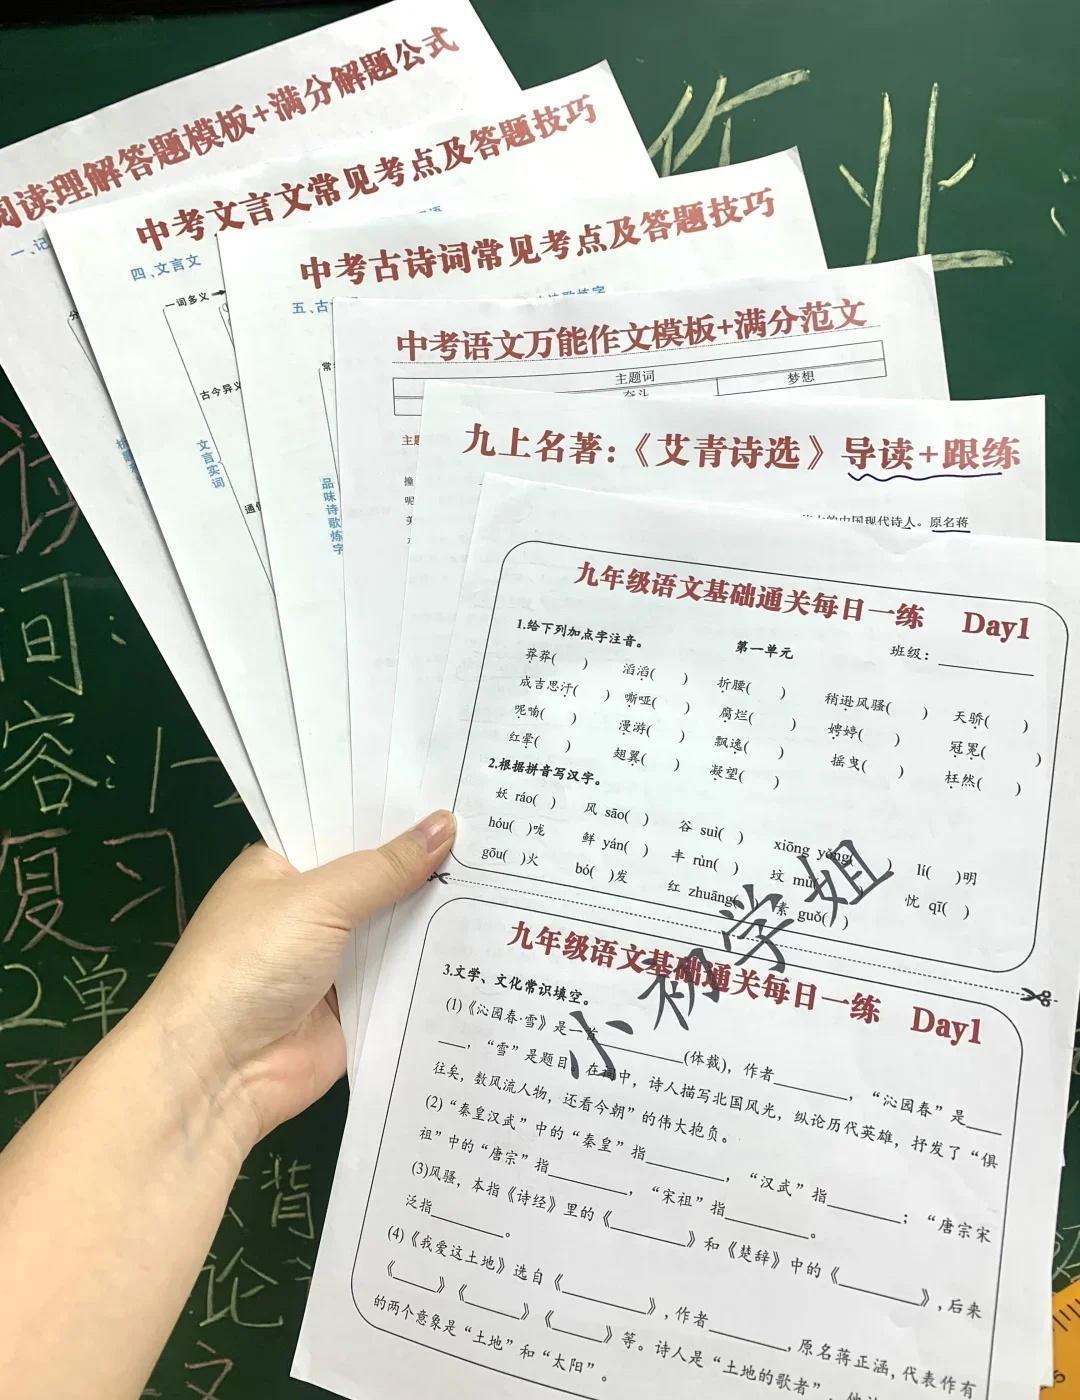 阅读理解答题模板+满分解题公式
中考文言文常见考点及答题技巧
四、文言文
一词多义
古今异义
文言实词
中考古诗词常见考点及答题技巧
品味诗歌炼字
中考语文万能作文模板+满分范文
主题词
梦想
九上名著:《艾青诗选》导读+跟练
的中国现代诗人。原名蒋
九年级语文基础通关每日一练 Day1
1.给下列加点字注音。 第一单元 班级:
莽莽( ) 滔滔( ) 折腰( ) 稍逊风骚( ) 天骄( )
成吉思汗( ) 嘶哑( ) 腐烂( ) 娉婷( ) 冠冕( )
呢喃( ) 漫游( ) 飘逸( ) 摇曳( ) 枉然( )
红晕( ) 翅翼( ) 凝望( )
2.根据拼音写汉字。
妖 ráo( ) 风 sāo( ) 谷 suì( ) xiōng yǒng( ) lí( )明
hóu( )咙 鲜 yán( ) 丰 rùn( ) 坟 mù( ) 忧 qī( )
gōu( )火 bó( )发 红 zhuāng( ) 素 guǒ( )
小初学姐
九年级语文基础通关每日一练 Day1
3.文学、文化常识填空。
(1)《沁园春·雪》是一首________(体裁),作者________,“沁园春”是____
____,“雪”是题目。在词中,诗人描写北国风光,纵论历代英雄,抒发了“俱
往矣,数风流人物,还看今朝”的伟大抱负。
(2)“秦皇汉武”中的“秦皇”指________,“汉武”指________;“唐宗宋
祖”中的“唐宗”指________,“宋祖”指________。
(3)风骚,本指《诗经》里的《________》和《楚辞》中的《________》,后来
泛指________。
(4)《我爱这土地》选自《________》,作者________,原名蒋正涵,代表作有
《____》《____》《____》等。诗人是“土地的歌者”,
的两个意象是“土地”和“太阳”。